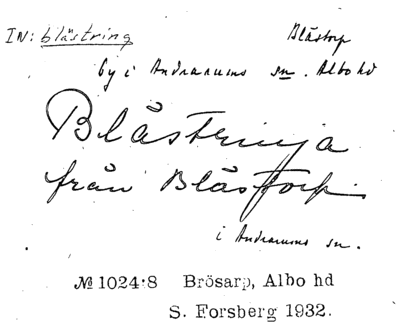 IN: blästring
Blåstorp
by i Andrarums sn. Albo hd
Blästringa
från Blåstorp
i Andrarums sn.
№ 1024:8 Brösarp, Albo hd
S. Forsberg 1932.